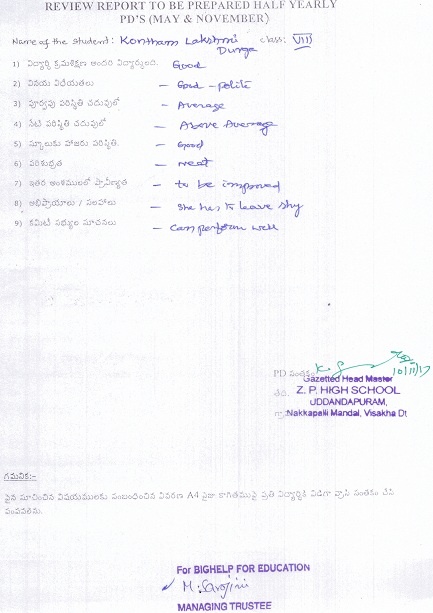 REVIEW REPORT TO BE PREPARED HALF YEARLY
PD'S (MAY & NOVEMBER)
Name of the student: Kontham Lakshmi Durga class: VIII
1) విద్యార్థి క్రమశిక్షణ అందరి విద్యార్థులది. Good
2) వినయ విధేయతలు - Good - polite
3) పూర్వపు పరిస్థితి చదువులో - Average
4) నేటి పరిస్థితి చదువులో - Above Average
5) స్కూలుకు హాజరు పరిస్థితి. - Good
6) పరిశుభ్రత - neat
7) ఇతర అంశములలో ప్రావీణ్యత - to be improved
8) అభిప్రాయాలు / సలహాలు - She has to leave shy
9) కమిటీ సభ్యుల సూచనలు - Can perform well
PD సంతకం 10/11/17
Gazetted Head Master
తేది. Z. P. HIGH SCHOOL
UDDANDAPURAM,
Nakkapalli Mandal, Visakha Dt
గమనిక:-
పైన సూచించిన విషయములకు సంబంధించిన వివరణ A4 సైజు కాగితముపై ప్రతి విద్యార్థికి విడిగా వ్రాసి సంతకం చేసి
పంపవలెను.
For BIGHELP FOR EDUCATION
M. Sarojini
MANAGING TRUSTEE